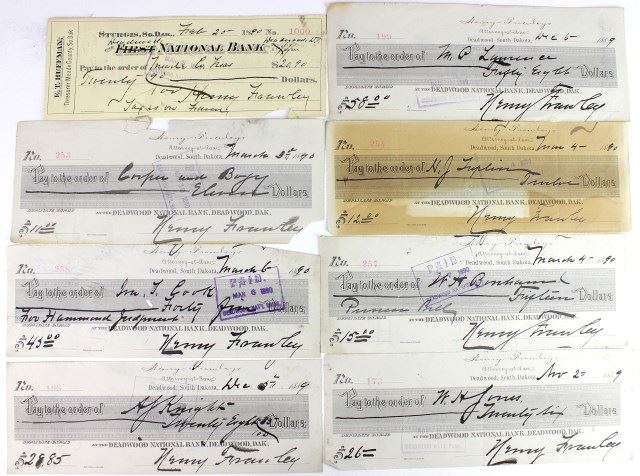 E. T. HUFFMAN,
Treasurer Meade County, So. Dak.
STURGIS, SO. DAK. Feb 20 1890 No. 1000
Deadwood
FIRST NATIONAL BANK
Pay to the order of $20.90
Twenty 90 Dollars.
Henry Frawley
Henry Frawley
Attorney-at-Law
No. 199 Deadwood, South Dakota, Dec 5 1889
Pay to the order of M. C. Lawrence
Fifty Eight Dollars,
AT THE DEADWOOD NATIONAL BANK, DEADWOOD, DAK.
$58.00 Henry Frawley
Henry Frawley
Attorney-at-Law
No. 253 Deadwood, South Dakota, March 3rd 1890
Pay to the order of Cooper and
Eleven Dollars
AT THE DEADWOOD NATIONAL BANK, DEADWOOD, DAK.
$11.00 Henry Frawley
Attorney-at-Law
No. Deadwood, South Dakota, Mar 4 1890
Pay to the order of
Twelve Dollars,
AT THE DEADWOOD NATIONAL BANK, DEADWOOD, DAK.
$12.00 Henry Frawley
Attorney-at-Law
No. 258 Deadwood, South Dakota, March 6 1890
PAID
MAR 6 1890
Pay to the order of Wm. T. Cook
For Hammond Judgment Forty Five
DEADWOOD NATIONAL BANK, DEADWOOD, DAK.
$45.00 Henry Frawley
Attorney-at-Law
No. 257 Deadwood, South Dakota, March 4 1890
PAID
Pay to the order of W. H. Bonham
Pioneer Fifteen Dollars,
AT THE DEADWOOD NATIONAL BANK, DEADWOOD, DAK.
$15.00 Henry Frawley
Attorney-at-Law
No. 198 Deadwood, South Dakota, Dec 5th 1889
Pay to the order of A J Knight
Twenty Eight 85/100 Dollars
AT THE DEADWOOD NATIONAL BANK, DEADWOOD, DAK.
$28.85 Henry Frawley
Attorney-at-Law
No. 173 Deadwood, South Dakota, Nov 2 1889
Pay to the order of W. H. Jones
Twenty six Dollars,
AT THE DEADWOOD NATIONAL BANK, DEADWOOD, DAK.
$26 Henry Frawley